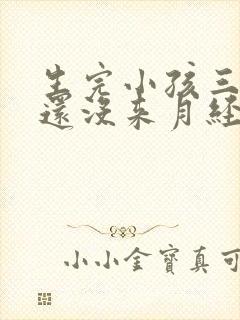 生完小孩三
還沒来月经
小小金寶真可